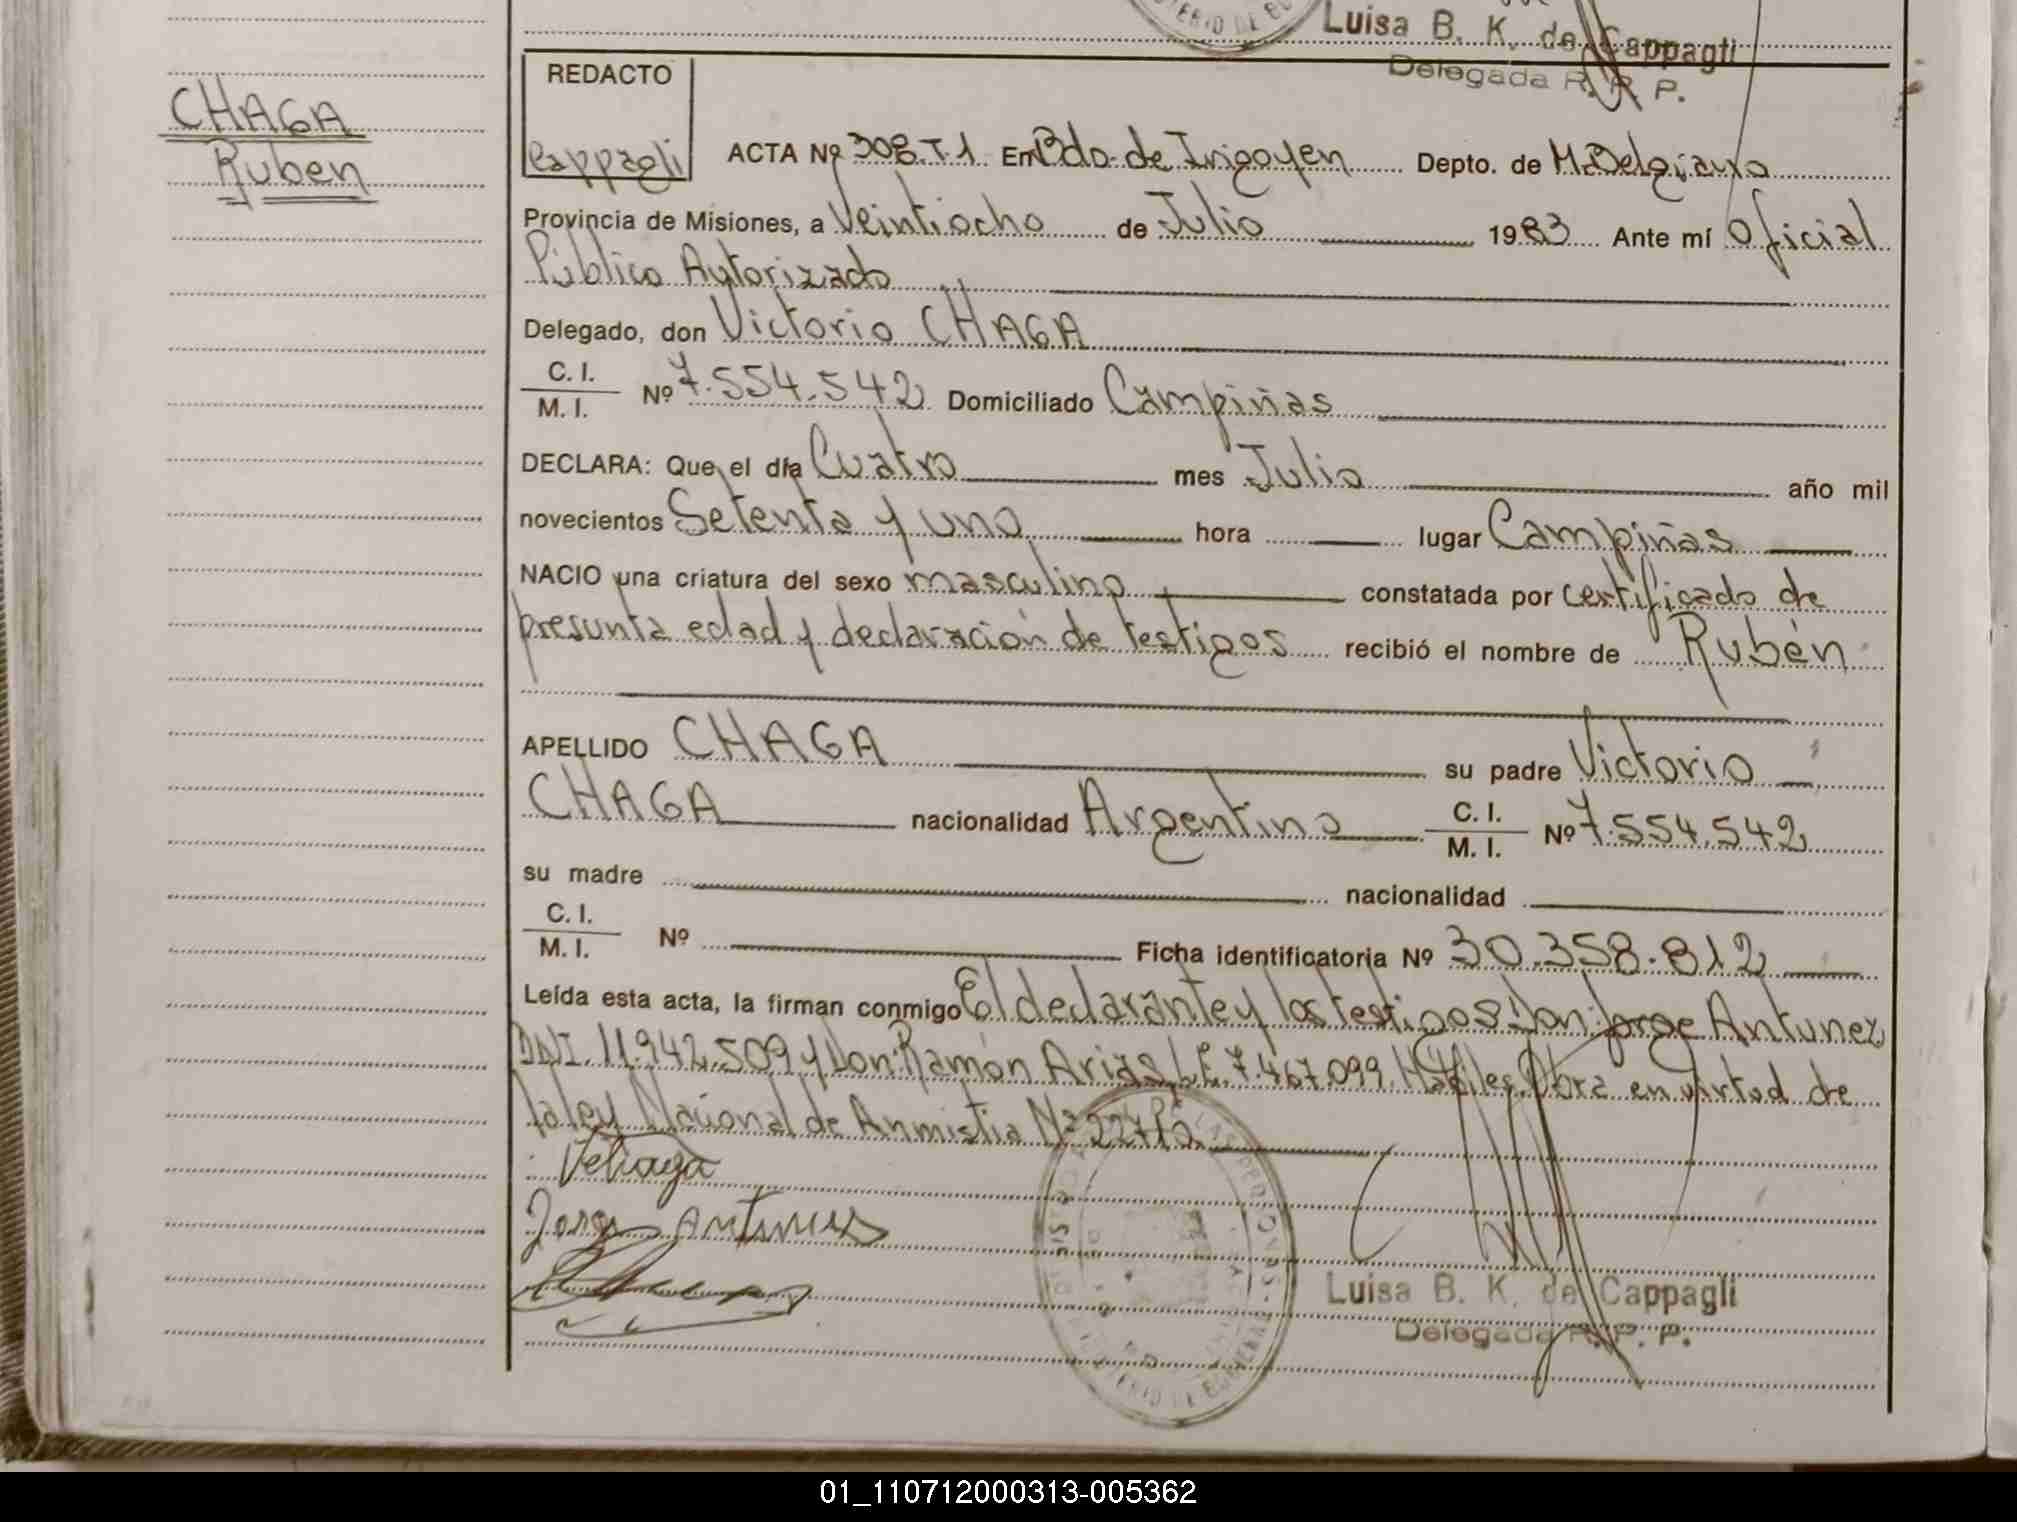 Luisa B. K. de Cappagli
Delegada R. P. P.
CHAGA
Ruben
REDACTO
Cappagli
ACTA Nº 308.T.1 En Bdo. de Irigoyen Depto. de M. Belgrano
Provincia de Misiones, a Veintiocho de Julio 1983 Ante mí Oficial
Público Autorizado
Delegado, don Victorio CHAGA
C. I.
M. I. Nº 7.554.542 Domiciliado Campiñas
DECLARA: Que el día Cuatro mes Julio año mil
novecientos Setenta y uno hora lugar Campiñas
NACIO una criatura del sexo masculino constatada por certificado de
presunta edad y declaración de testigos recibió el nombre de Rubén
APELLIDO CHAGA su padre Victorio
CHAGA nacionalidad Argentino C. I.
M. I. Nº 7.554.542
su madre nacionalidad
C. I.
M. I. Nº Ficha identificatoria Nº 30.358.812
Leída esta acta, la firman conmigo El declarante y los testigos Don: Jorge Antunez
DNI. 11.942.509 y Don: Ramón Arias L.E. 7.467.099. Hábiles. Obra en virtud de
la ley Nacional de Anmistia Nº
Vchaga
Jorge Antunes
Luisa B. K. de Cappagli
Delegada R. P. P.
01_110712000313-005362